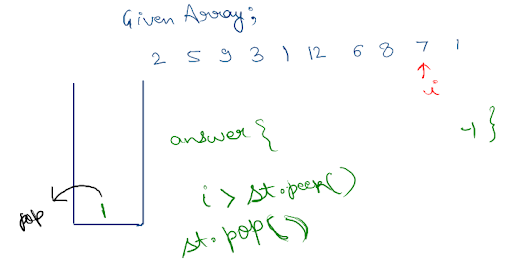 Given Array;
2 5 9 3 1 12 6 8 7 1
i
answer { -1 }
i > st.peek()
pop 1
st.pop()